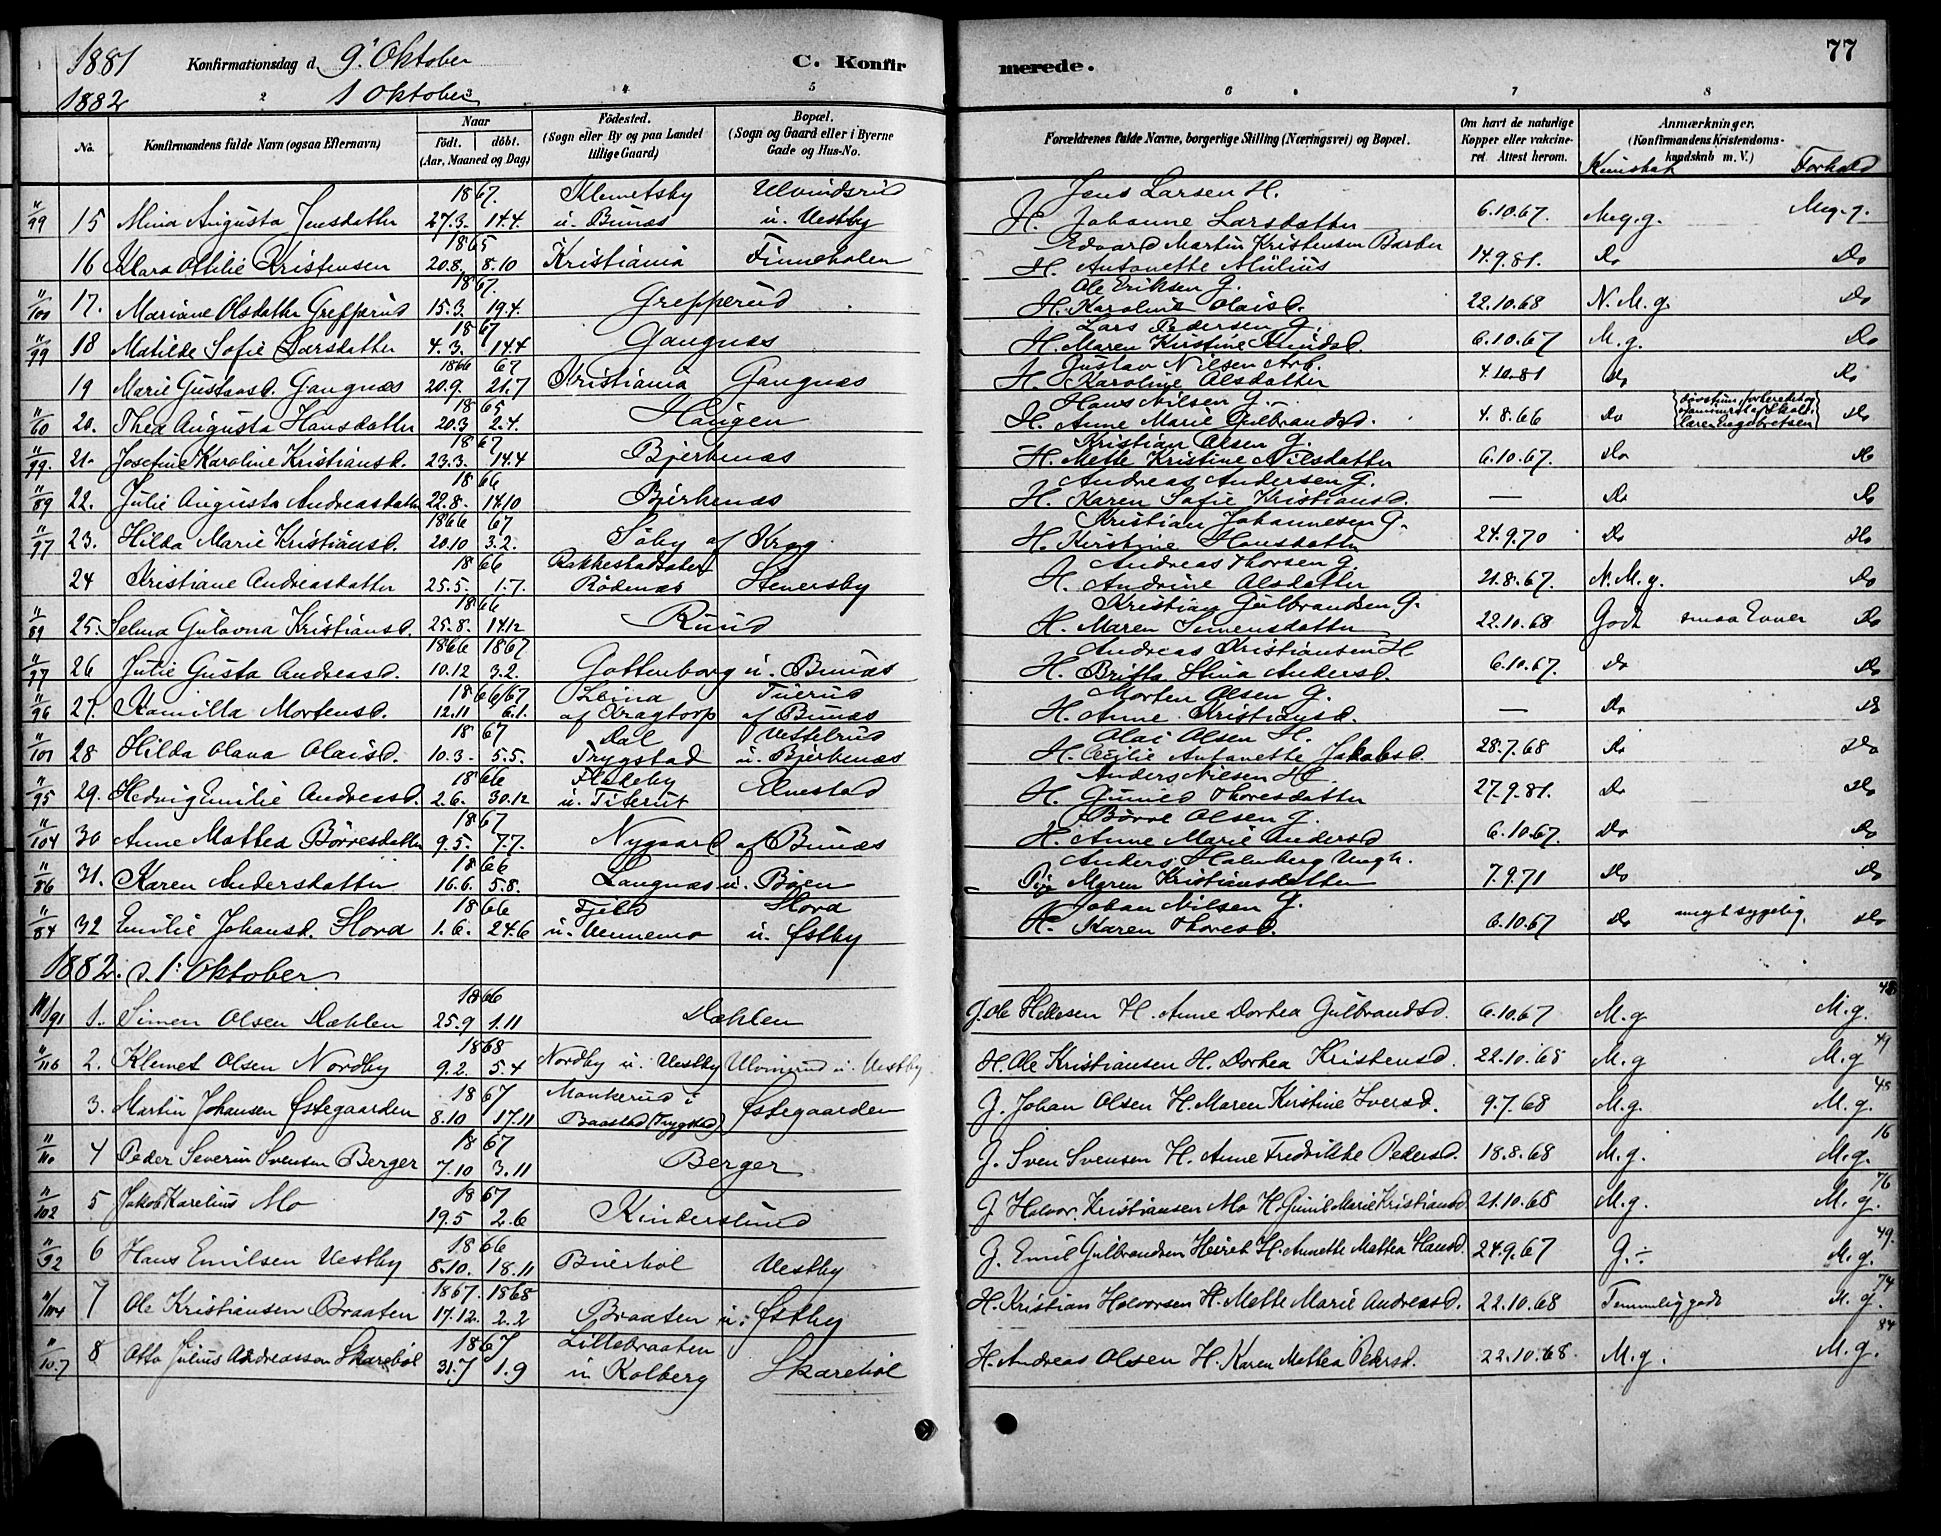 1881 Konfirmationsdag d. 9' Oktober C. Konfirmerede. 77
1882 1 Oktober
2 3 4 5 6 7 8
No. Konfirmandens fulde Navn (ogsaa Efternavn) Naar født. døbt. (Aar, Maaned og Dag) Fødested. (Sogn eller By og paa Landet tillige Gaard) Bopæl. (Sogn og Gaard eller i Byerne Gade og Hus-No. Forældrenes fulde Navne, borgerlige Stilling (Næringsvei) og Bopæl. Om havt de naturlige Kopper eller vakcineret. Attest herom. Anmærkninger. (Konfirmandens Kristendomskundskab m. V.) Kundskab Forhold
1867. Klemetsby Jens Larsen H.
"/99 15 Mina Augusta Jensdatter 27.3. 14.4 u. Bunæs u. Vestby H. Johanne Larsdatter 6.10.67. Meg. g. Meg. g.
1865 Edvard Martin Kristensen
16 Klara Ottilie Kristensen 20.8. 8.10 Kristiania Finneholen H. Antonette Mülius 14.9.81. Do Do
1867. Ole Eriksen G.
17. Mariane Olsdatter Grefferud 15.3. 19.4. Grepperud H. Karoline Olaisd. 22.10.68 N. M. g Do
1867 Lars Pedersen G.
"/99 18 Matilde Sofie Larsdatter 4.3. 14.4 Gangnæs H. Maren Kirstine Knudsd. 6.10.67 M. g. Do
1866 67 Gustav Nilsen Arb.
19 Marie Gustavsd. Gangnæs 20.9. 21.7 Kristiania Gangnæs H. Karoline Olsdatter 4.10.81 Do Do
1865 Hans Nilsen G.
"/60 20. Thea Augusta Hansdatter 20.3 2.4. Haugen H. Anne Marie Gulbrandsd. 4.8.66 Do Do
1867 Kristian Olsen G.
"/99. 21. Josefine Karoline Kristiansd. 23.3. 14.4 Bjerkenæs H. Mette Kristine Nilsdatter 6.10.67. Do Do
1866 Andreas Andersen G.
"/89 22. Julie Augusta Andreasdatter 22.8. 14.10 Bjerkenæs H. Karen Sofie Kristiansd. — Do Do
1866 67 Kristian Johannesen G.
"/97 23. Hilda Marie Kristiansd. 20.10 3.2. Søby af Krog H. Kirstine Hansdatter 24.9.70 Do Do
1866 Andreas Thorsen G.
24 Kristiane Andreasdatter 25.5. 1.7. Rødenæs Stenersby H. Andrine Olsdatter 21.8.67. N. M. g. Do
1866 Kristian Gulbrandsen G.
"/89 25. Selma Gulovna Kristiansd. 25.8. 14.12 Ruud H. Maren Simensdatter 22.10.68 Godt smaa Evner Do
1866 1867 Andreas Kristiansen H
"/97 26 Julie Gusta Andreasd. 10.12 3.2. Gottenborg u. Bunæs H. Britta Stina Andersd. 6.10.67. Do Do
1866/67 Morten Olsen G.
"/96 27. Kamilla Mortensd. 12.11 6.1. af Kragtorp af Bunæs H. Anne Kristiansd. — Do Do
1867 Dal Olai Olsen H.
"/101 28 Hilda Olava Olaisd. 10.3. 5.5. Trygstad u. Bjerkenæs H. Cecilie Antonette Jakobsd. 28.7.68 Do Do
1866 Fladeby Anders Nilsen H
"/95 29. Hedvig Emilie Andreasd. 2.6. 30.12 u. Titerut Elvestad H. Gunild Thoresdatter 27.9.81. Do Do
1867 Børre Olsen G.
"/104 30 Anne Mathea Børresdatter 9.5. 7.7. Nygaard af Bunæs H. Anne Marie Andersd 6.10.67. Do Do
1866 Anders Holmberg Ungk.
"/86 31. Karen Andersdatter 16.6. 5.8. Langnæs u. Bøen Pige Maren Kristiansdatter 7.9.71 Do Do
1866 Fjeld Slora Johan Nilsen G.
"/84 32 Emilie Johansd. Slora 1.6. 24.6 u. Vennemo u. Østby H. Karen Thoresd. 6.10.67 Do meget sygelig. Do
1882. d. 1. Oktober
1866 48
"/91 1. Simen Olsen Dæhlen 25.9 1.11 Dæhlen G. Ole Hellesen H. Anne Dorthea Gulbrandsd. 6.10.67 M. g M. g.
1868 49
"/116 2. Klemet Olsen Nordby 9.2. 5.4 Nordby u. Vestby Ulvinsrud u. Vestby H. Ole Kristiansen H. Dorthea Kristensd. 22.10.68 M. g M. g
1867 45
3. Martin Johansen Østegaarden 8.10 17.11 Monkerud i Baastad (Trygstad) Østegaarden G. Johan Olsen H. Maren Kirstine Iversd. 9.7.68 M. g. M. g.
1867 16
"/110 4 Peder Severin Svensen Berger 7.10 3.11 Berger G. Sven Svensen H. Anne Fredrikke Pedersd. 18.8.68 M. g. M. g.
1867 76
"/102 5 Jakob Karelius Mo 19.5 2.6 Kinderslund G Halvor Kristiansen Mo H. Gunil Marie Kristiansd 21.10.68 M. g. M. g.
1866 49.
"/92 6 Hans Emilsen Vestby 5.10. 18.11 Buerhol Vestby G. Emil Gulbrandsen H. Annette Mathea Hansd. 24.9.67 G. ÷ M. g.
1867. 1868 74
"/114 7 Ole Kristiansen Braaten 17.12. 2.2 Braaten u. Østby H. Kristian Halvorsen H. Mette Marie Andreasd. 22.10.68 Temmelig godt M. g.
1867 Lillebraaten 84
"/107 8 Otto Julius Andreassen Skarebøl 31.7 1.9 u Kolberg Skarebøl H. Andreas Olsen H. Karen Mathea Pedersd. 22.10.68. M. g. M. g.